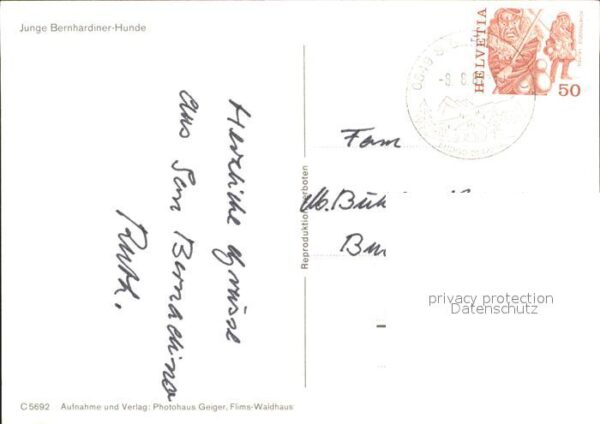 Junge Bernhardiner-Hunde
Herzliche Grüsse
aus San Bernardino
Ruth.
Reproduktion verboten
HELVETIA
50
Fam
M. Büh
privacy protection
Datenschutz
C 5692 Aufnahme und Verlag: Photohaus Geiger, Flims-Waldhaus